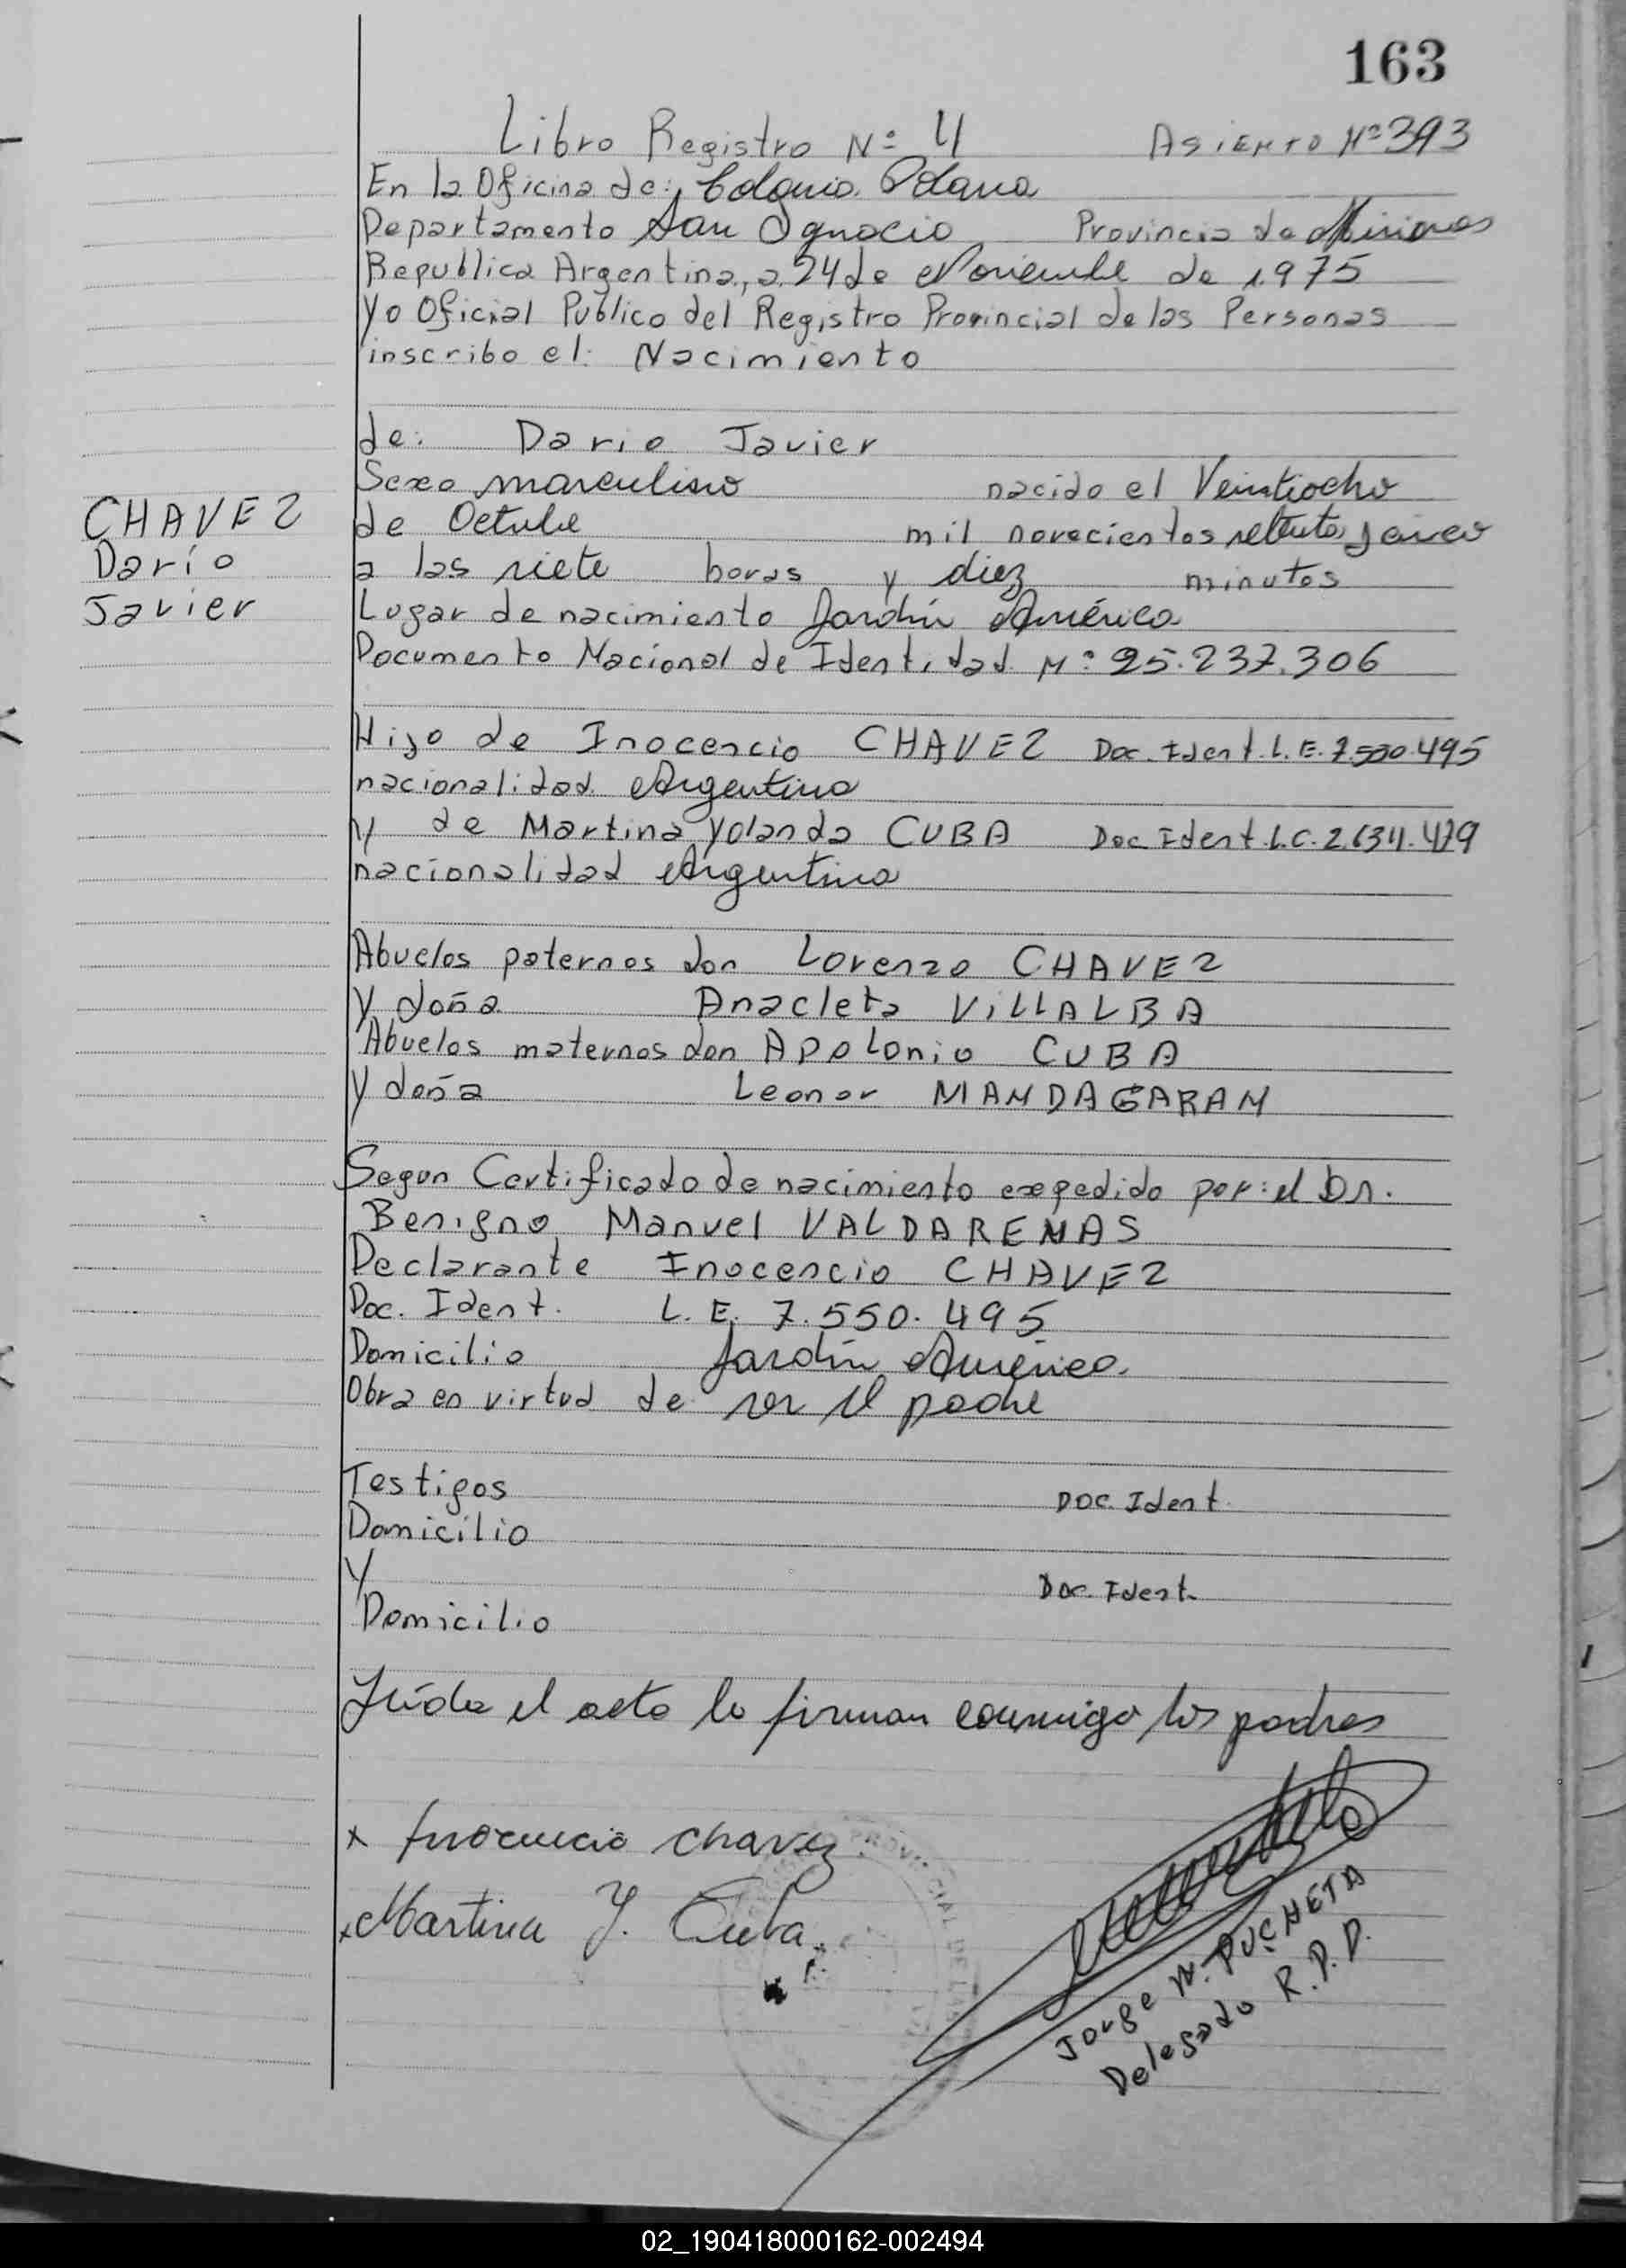 163
Libro Registro Nº 4 Asiento Nº 393
En la Oficina de: Colonia Polana
Departamento San Ignacio Provincia de Misiones
Republica Argentina, a 24 de Noviembre de 1.975
Yo Oficial Publico del Registro Provincial de las Personas
inscribo el: Nacimiento
de: Dario Javier
Sexo masculino nacido el Veintiocho
CHAVEZ
Darío
Javier
de Octubre mil novecientos setenta y cinco
a las siete horas y diez minutos
Lugar de nacimiento Jardín América
Documento Nacional de Identidad Nº 25.237.306
Hijo de Inocencio CHAVEZ Doc. Ident. L.E. 7.550.495
nacionalidad Argentina
y de Martina Yolanda CUBA Doc Ident. L.C.
nacionalidad Argentina
Abuelos paternos don Lorenzo CHAVEZ
Y doña Anacleta VILLALBA
Abuelos maternos don Apolonio CUBA
Y doña Leonor MANDAGARAN
Segun Certificado de nacimiento expedido por: el Dr.
Benigno Manuel VALDARENAS
Declarante Inocencio CHAVEZ
Doc. Ident. L. E. 7.550.495
Domicilio Jardín América.
Obra en virtud de ser el padre
Testigos Doc. Ident.
Domicilio
Y Doc. Ident.
Domicilio
Leída el acta la firman conmigo los padres
x Inocencio Chavez
x Martina Y. Cuba.
Jorge N. PUCHETA
Delegado R.P.P.
02_190418000162-002494